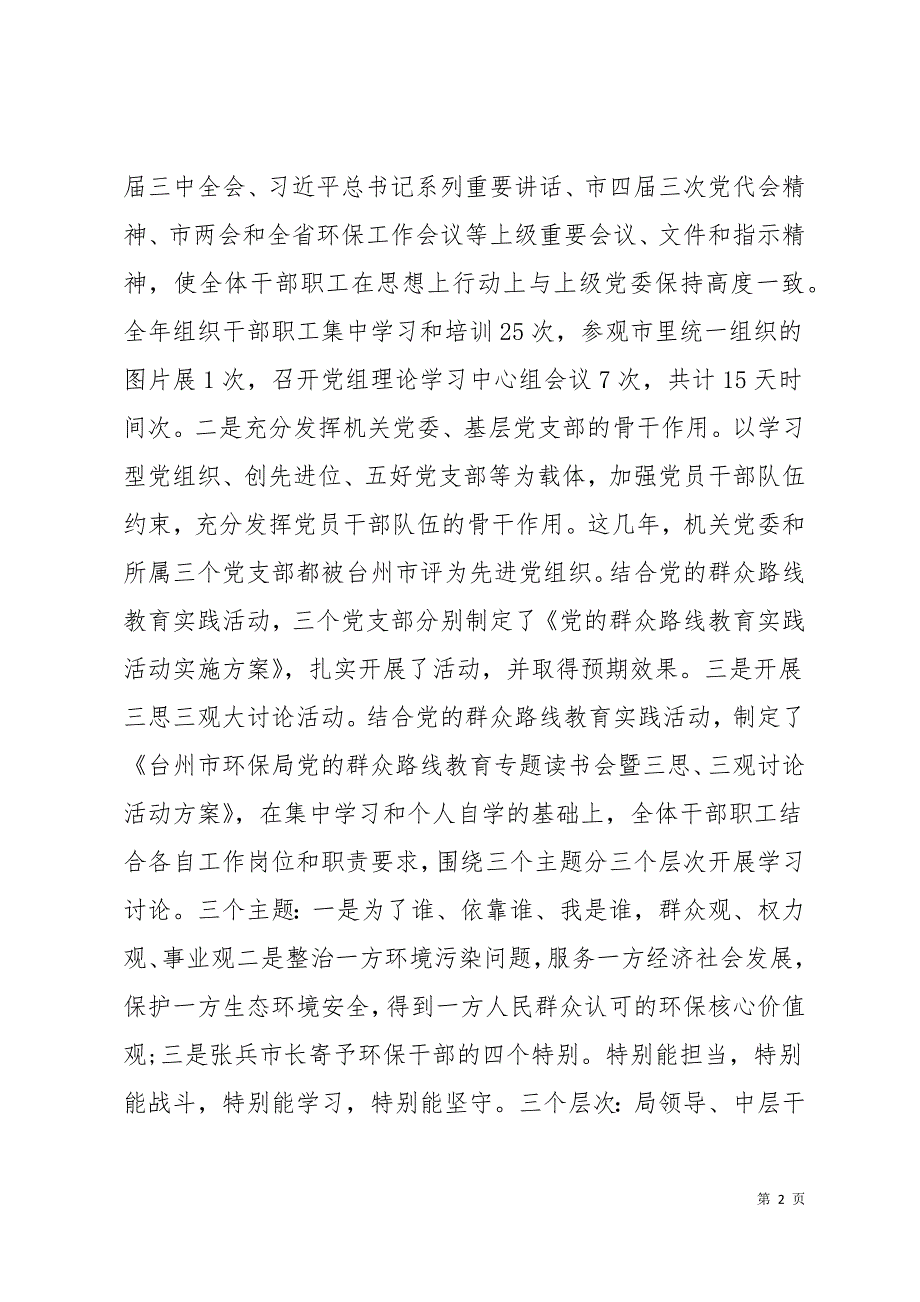 届三中全会、习近平总书记系列重要讲话、市四届三次党代会精
神、市两会和全省环保工作会议等上级重要会议、文件和指示精
神，使全体干部职工在思想上行动上与上级党委保持高度一致。
全年组织干部职工集中学习和培训 25 次，参观市里统一组织的
图片展 1 次，召开党组理论学习中心组会议 7 次，共计 15 天时
间次。二是充分发挥机关党委、基层党支部的骨干作用。以学习
型党组织、创先进位、五好党支部等为载体，加强党员干部队伍
约束，充分发挥党员干部队伍的骨干作用。这几年，机关党委和
所属三个党支部都被台州市评为先进党组织。结合党的群众路线
教育实践活动，三个党支部分别制定了《党的群众路线教育实践
活动实施方案》，扎实开展了活动，并取得预期效果。三是开展
三思三观大讨论活动。结合党的群众路线教育实践活动，制定了
《台州市环保局党的群众路线教育专题读书会暨三思、三观讨论
活动方案》，在集中学习和个人自学的基础上，全体干部职工结
合各自工作岗位和职责要求，围绕三个主题分三个层次开展学习
讨论。三个主题：一是为了谁、依靠谁、我是谁，群众观、权力
观、事业观二是整治一方环境污染问题，服务一方经济社会发展，
保护一方生态环境安全，得到一方人民群众认可的环保核心价值
观;三是张兵市长寄予环保干部的四个特别。特别能担当，特别
能战斗，特别能学习，特别能坚守。三个层次：局领导、中层干
第 2 页